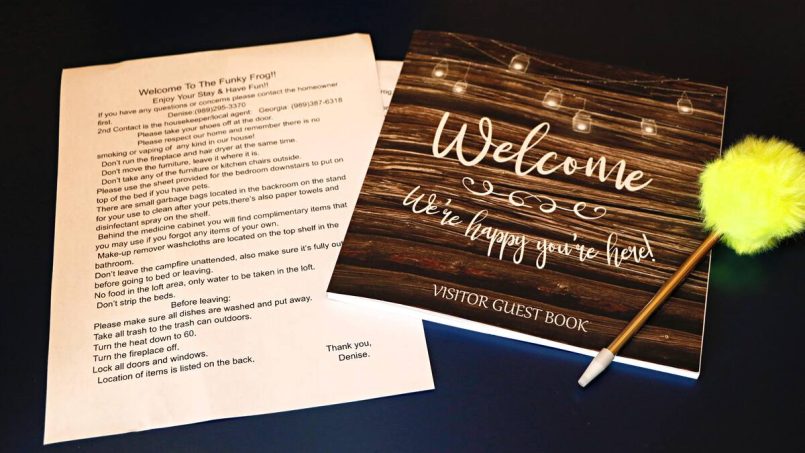 Welcome To The Funky Frog!!
Enjoy Your Stay & Have Fun!!
If you have any questions or concerns please contact the homeowner
first. Denise:(989)295-3370
2nd Contact is the housekeeper/local agent: Georgia: (989)387-6318
Please take your shoes off at the door.
Please respect our home and remember there is no
smoking or vaping of any kind in our house!
Don't run the fireplace and hair dryer at the same time.
Don't move the furniture, leave it where it is.
Don't take any of the furniture or kitchen chairs outside.
Please use the sheet provided for the bedroom downstairs to put on
top of the bed if you have pets.
There are small garbage bags located in the backroom on the stand
for your use to clean after your pets,there's also paper towels and
disinfectant spray on the shelf.
Behind the medicine cabinet you will find complimentary items that
you may use if you forgot any items of your own.
Make-up remover washcloths are located on the top shelf in the
bathroom.
Don't leave the campfire unattended, also make sure it's fully out
before going to bed or leaving.
No food in the loft area, only water to be taken in the loft.
Don't strip the beds.
Before leaving:
Please make sure all dishes are washed and put away.
Take all trash to the trash can outdoors.
Turn the heat down to 60.
Turn the fireplace off.
Lock all doors and windows.
Location of items is listed on the back.
Thank you,
Denise.
Welcome
We're happy you're here!
VISITOR GUEST BOOK